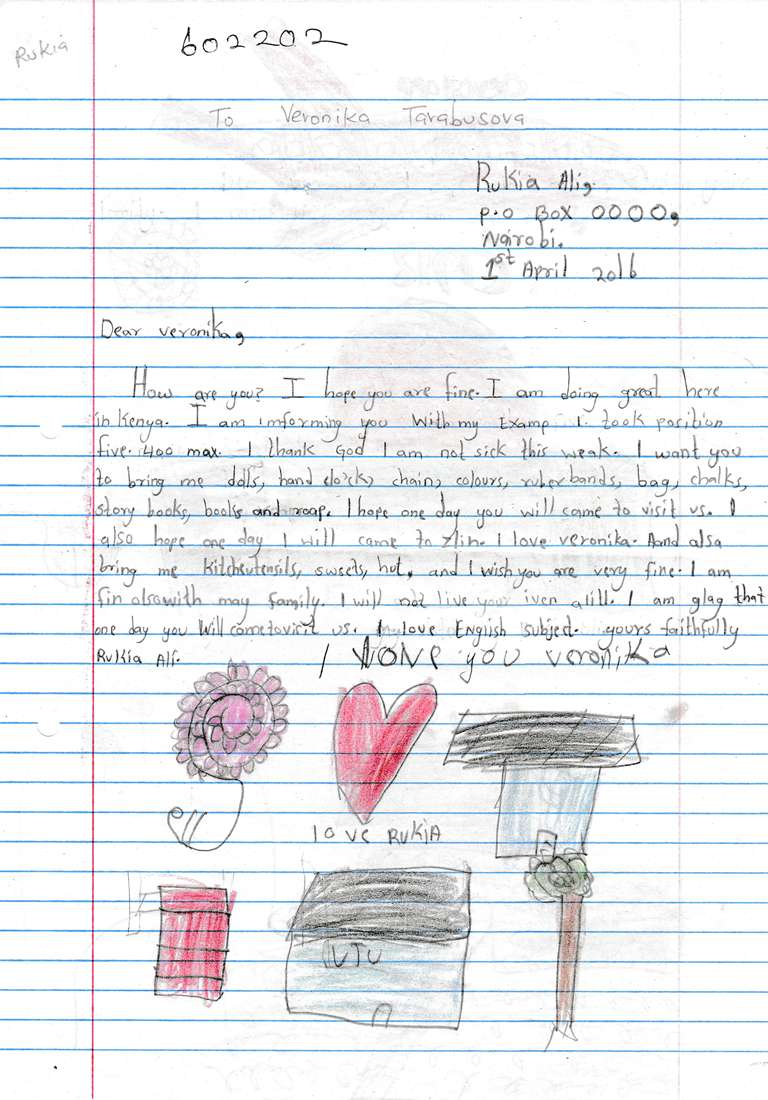 Rukia
602202
To Veronika Tarabusova
Rukia Ali,
P.O BOX 0000,
Nairobi.
1st April 2016
Dear veronika,
How are you? I hope you are fine. I am doing great here
in Kenya. I am imforming you with my Examp I took position
five. 400 max. I thank God I am not sick this weak. I want you
to bring me dolls, hand clock, chain, colours, ruber bands, bag, chalks,
story books, books and roap. I hope one day you will came to visit us. I
also hope one day I will came to zlin. I love veronika. Aand also
bring me kitcheutensils, sweets, hut, and I wish you are very fine. I am
fin alsowith may family. I will not live your iven alill. I am glag that
one day you will cometovicit us. I love English subject. yours faithfully
Rukia Ali. I LOVE you veronika
love RUKIA